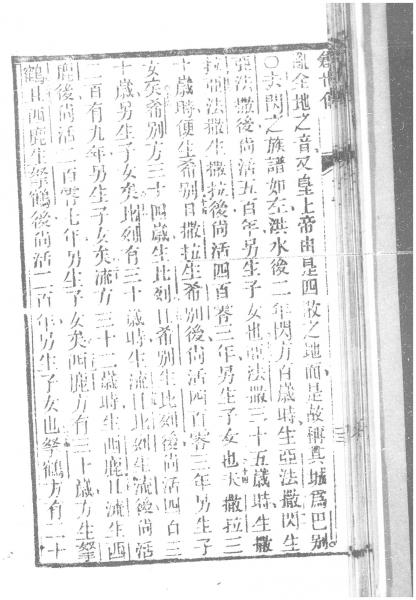 創世傳
亂全地之音又皇上帝由是四散之地面是故稱其城爲巴別
〇夫閃之族譜如左洪水後二年閃方百歲時生亞法撒閃生
亞法撒後尚活五百年另生子女也亞法撒三十五歲時生撒
拉亞法撒生撒拉後尚活四百零三年另生子女也夫撒拉三
十歲時便生希別且撒拉生希別後尚活四百零三年另生子
女矣希別方三十四歲生比刻且希別生比刻後尚活四百三
十歲另生子女矣比刻有三十歲時生流且比刻生流後尚活
二百有九年另生子女矣流方三十二歲時生西鹿且流生西
鹿後尚活二百零七年另生子女矣西鹿方有三十歲方生拏
鶴且西鹿生拏鶴後尚活二百年另生子女也拏鶴方有二十